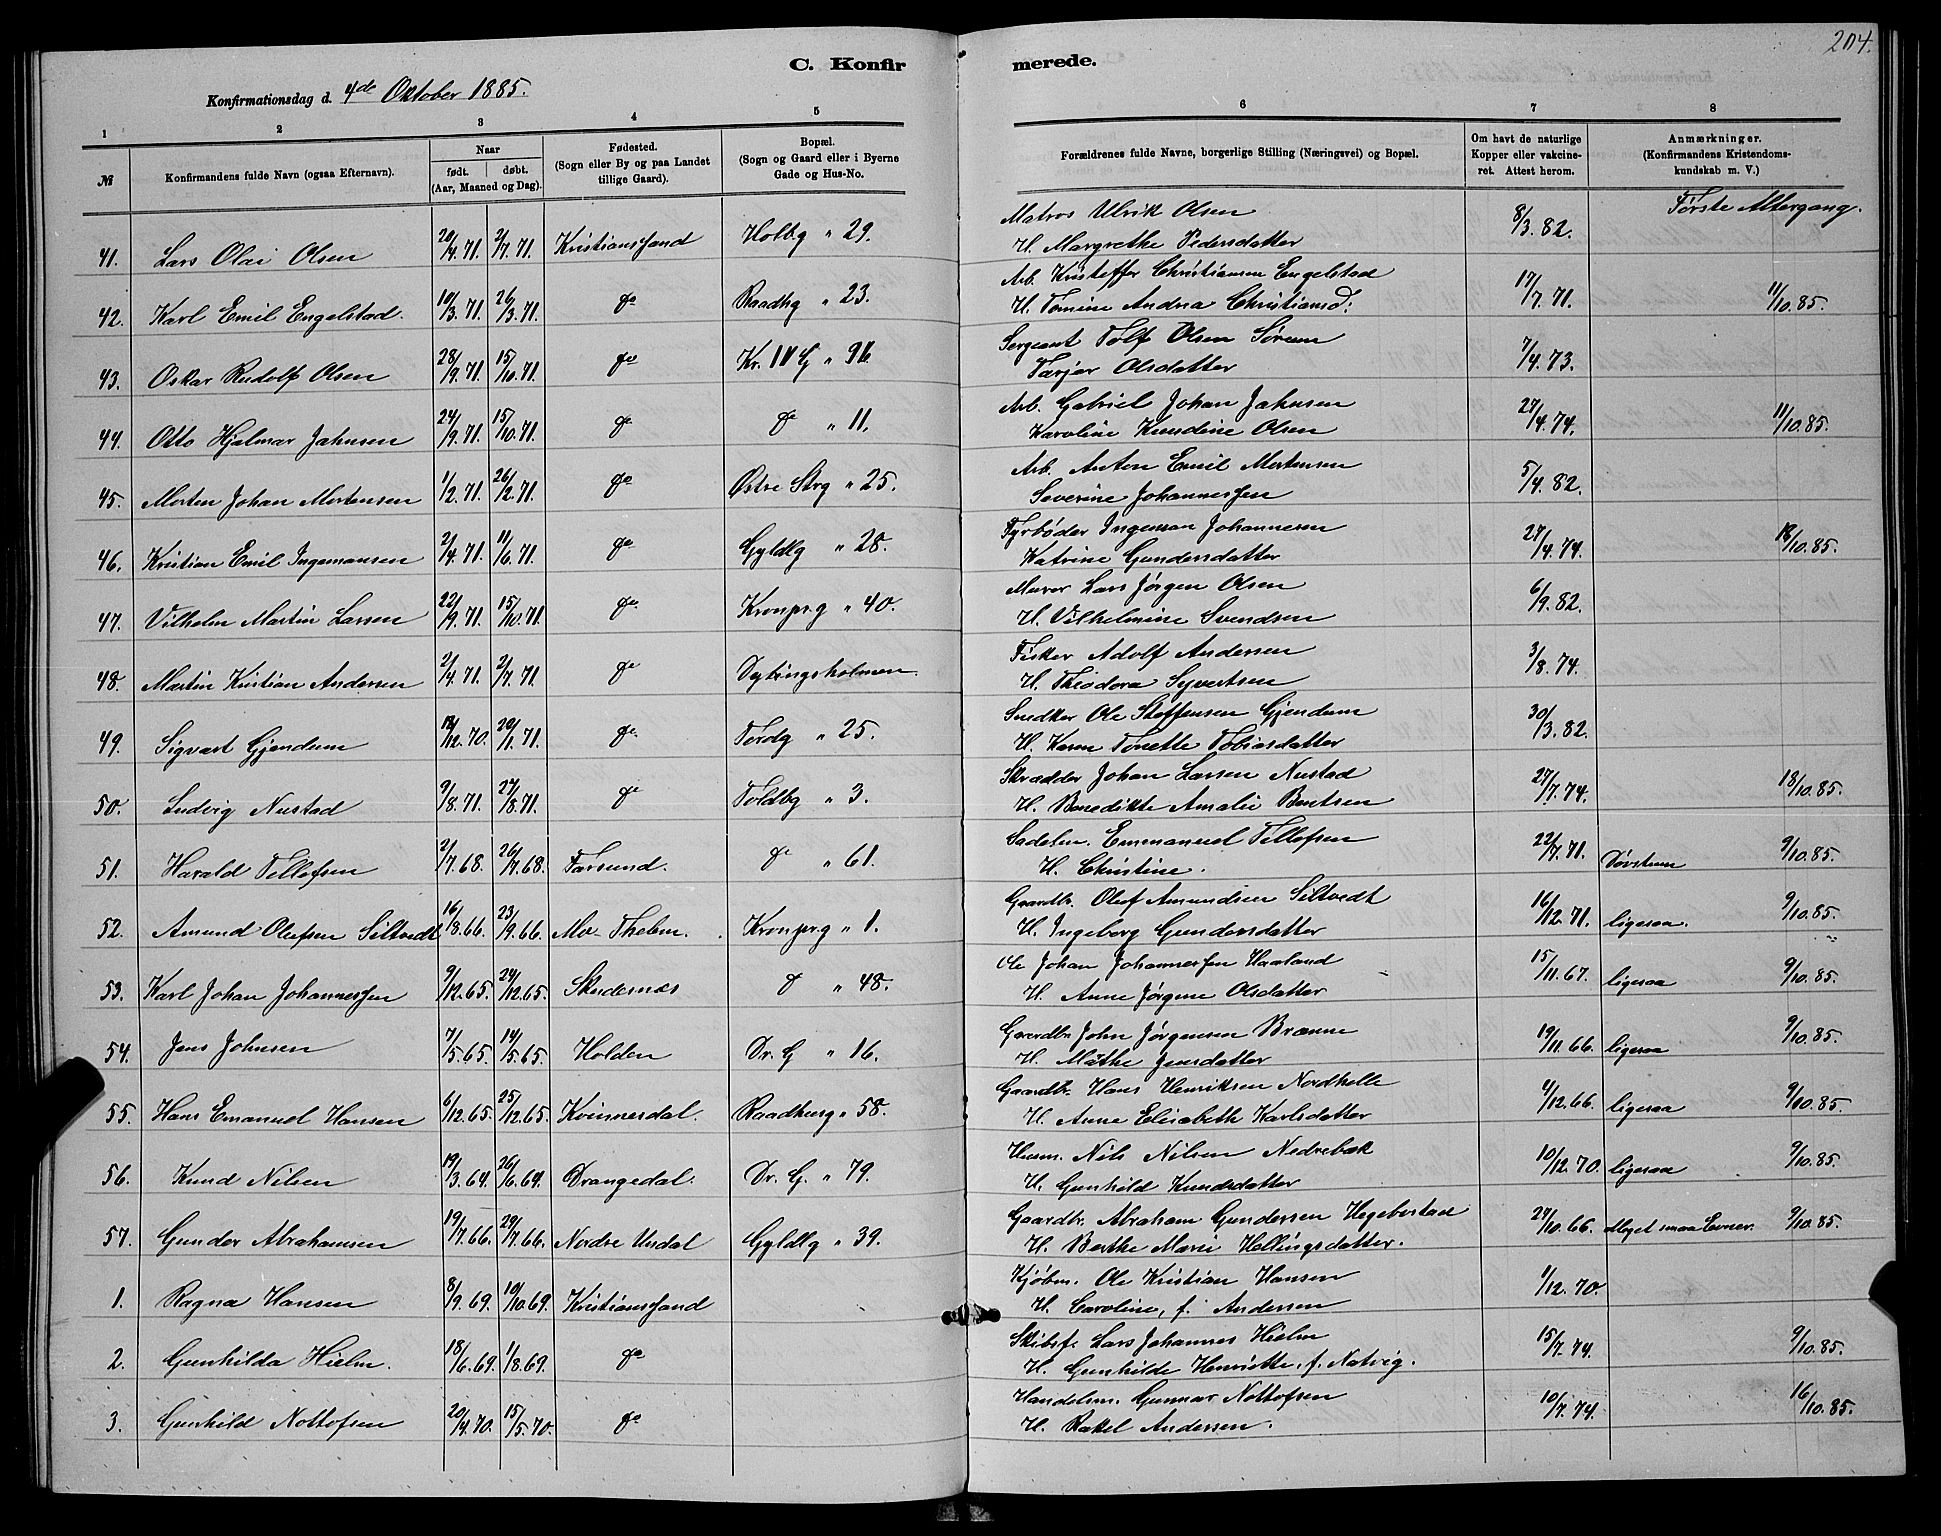 204.
C. Konfirmerede.
Konfirmationsdag d. 4de Oktober 1885.
1 2 3 4 5 6 7 8
№
Konfirmandens fulde Navn (ogsaa Efternavn).
Naar
født. døbt.
(Aar, Maaned og Dag).
Fødested.
(Sogn eller By og paa Landet
tillige Gaard).
Bopæl.
(Sogn og Gaard eller i Byerne
Gade og Hus-No.
Forældrenes fulde Navne, borgerlige Stilling (Næringsvei) og Bopæl.
Om havt de naturlige
Kopper eller vakcine-
ret. Attest herom.
Anmærkninger.
(Konfirmandens Kristendoms-
kundskab m. V.)
Første Altergang.
41. Lars Olai Olsen 20/4.71. 2/7.71. Kristianssand Holbg " 29. Matros Ulrik Olsen 8/3.82.
H. Margrethe Pedersdatter
42. Karl Emil Engelstad. 10/3.71. 26/3.71. do Raadhg " 23. Arb. Kristoffer Christiansen Engelstad 17/7.71. 11/10.85.
H. Tomine Andrea Christiansd:
43. Oskar Rudolf Olsen 28/9.71. 15/10.71. do Kr. IV G " 96 Sergeant Tolf Olsen Sørum 7/4.73.
Tarjer Olsdatter
44. Otto Hjalmar Jahnsen 24/9.71. 15/10.71. do do " 11. Arb. Gabriel Johan Jahnsen 27/4.74. 11/10.85.
Karoline Knudine Olsen
45. Morten Johan Mortensen 1/2.71. 26/2.71. do Østre Strg " 25. Arb. Anton Emil Mortensen 5/4.82.
Severine Johannessen
46. Kristian Emil Ingemansen 2/4.71. 11/6.71. do Gyldlg " 28. Fyrbøder Ingeman Johannesen 27/4.74. 18/10.85.
Katrine Gundersdatter
47. Vilhelm Martin Larsen 22/9.71. 15/10.71. do Kronprg " 40. Murer Lars Jørgen Olsen 6/9.82.
H. Vilhelmine Svendsen
48. Martin Kristian Andersen 2/4.71. 2/7.71. do Dybingsholmen. Fisker Adolf Andersen 3/8.74.
H. Theodora Syvertsen
49. Sigvart Gjendem 18/12.70. 29/1.71. do Tordg " 25. Snedker Ole Steffensen Gjendem 30/3.82.
H. Karen Tonette Tobiasdatter
50. Ludvig Nustad 9/8.71. 27/8.71. do Toldbg " 3. Skrædder Johan Larsen Nustad 27/7.74. 18/10.85.
H. Benedikte Amalie Bentsen
51. Harald Tellefsen 2/7.68. 26/7.68. Farsund. do " 61. Sadelm. Emmanuel Tellefsen 22/7.71. Døvstum 9/10.85.
H. Christine.
52. Amund Olefsen Siltvedt 16/8.66. 23/9.66. Mo. Thelm. Kronprg " 1. Gaardbr. Olef Amundsen Siltvedt 16/12.71. ligesaa. 9/10.85.
H. Ingeborg Gundersdatter
53. Karl Johan Johannessen 9/12.65. 24/12.65. Skudesnæs do " 48. Ole Johan Johannessen Haaland 15/11.67. ligesaa 9/10.85.
H. Anne Jørgine Olsdatter
54. Jens Johnsen 7/5.65. 14/5.65. Holden Dr. G " 16. Gaardbr John Jørgensen Brænne 19/11.66. ligesaa 9/10.85.
H. Mathe Jensdatter
55. Hans Emanuel Hansen 6/12.65. 25/12.65. Kvinnesdal. Raadhusg " 58. Gaardbr. Hans Henriksen Nordhelle 4/12.66. ligesaa 9/10.85.
H. Anne Elisabeth Karlsdatter
56. Knud Nilsen 19/3.64. 26/6.64. Drangedal. Dr. G. " 79. Husm. Nils Nilsen Nedrebæk 10/12.70. ligesaa 9/10.85.
H. Gunhild Knudsdatter
57. Gunder Abrahamsen 19/7.66. 29/7.66. Nordre Undal Gyldlg " 39. Gaardbr. Abraham Gundersen Hegebostad 27/10.66. Meget smaa Evner. 9/10.85.
H. Berthe Marie Hellingsdatter.
1. Ragna Hansen 8/9.69. 10/10.69. Kristianssand Kjøbm. Ole Kristian Hansen 1/12.70.
H. Caroline, f. Andersen
2. Gunhilda Hielm. 18/6.69. 1/8.69. do Skibsf. Lars Johannes Hielm 15/7.74. 9/10.85.
H. Gunhilde Henriette, f. Natvig.
3. Gunhild Nottofsen 20/4.70. 15/5.70. do Handelsm. Gunnar Nottofsen 10/7.74. 16/10.85.
H. Rakel Andersen.